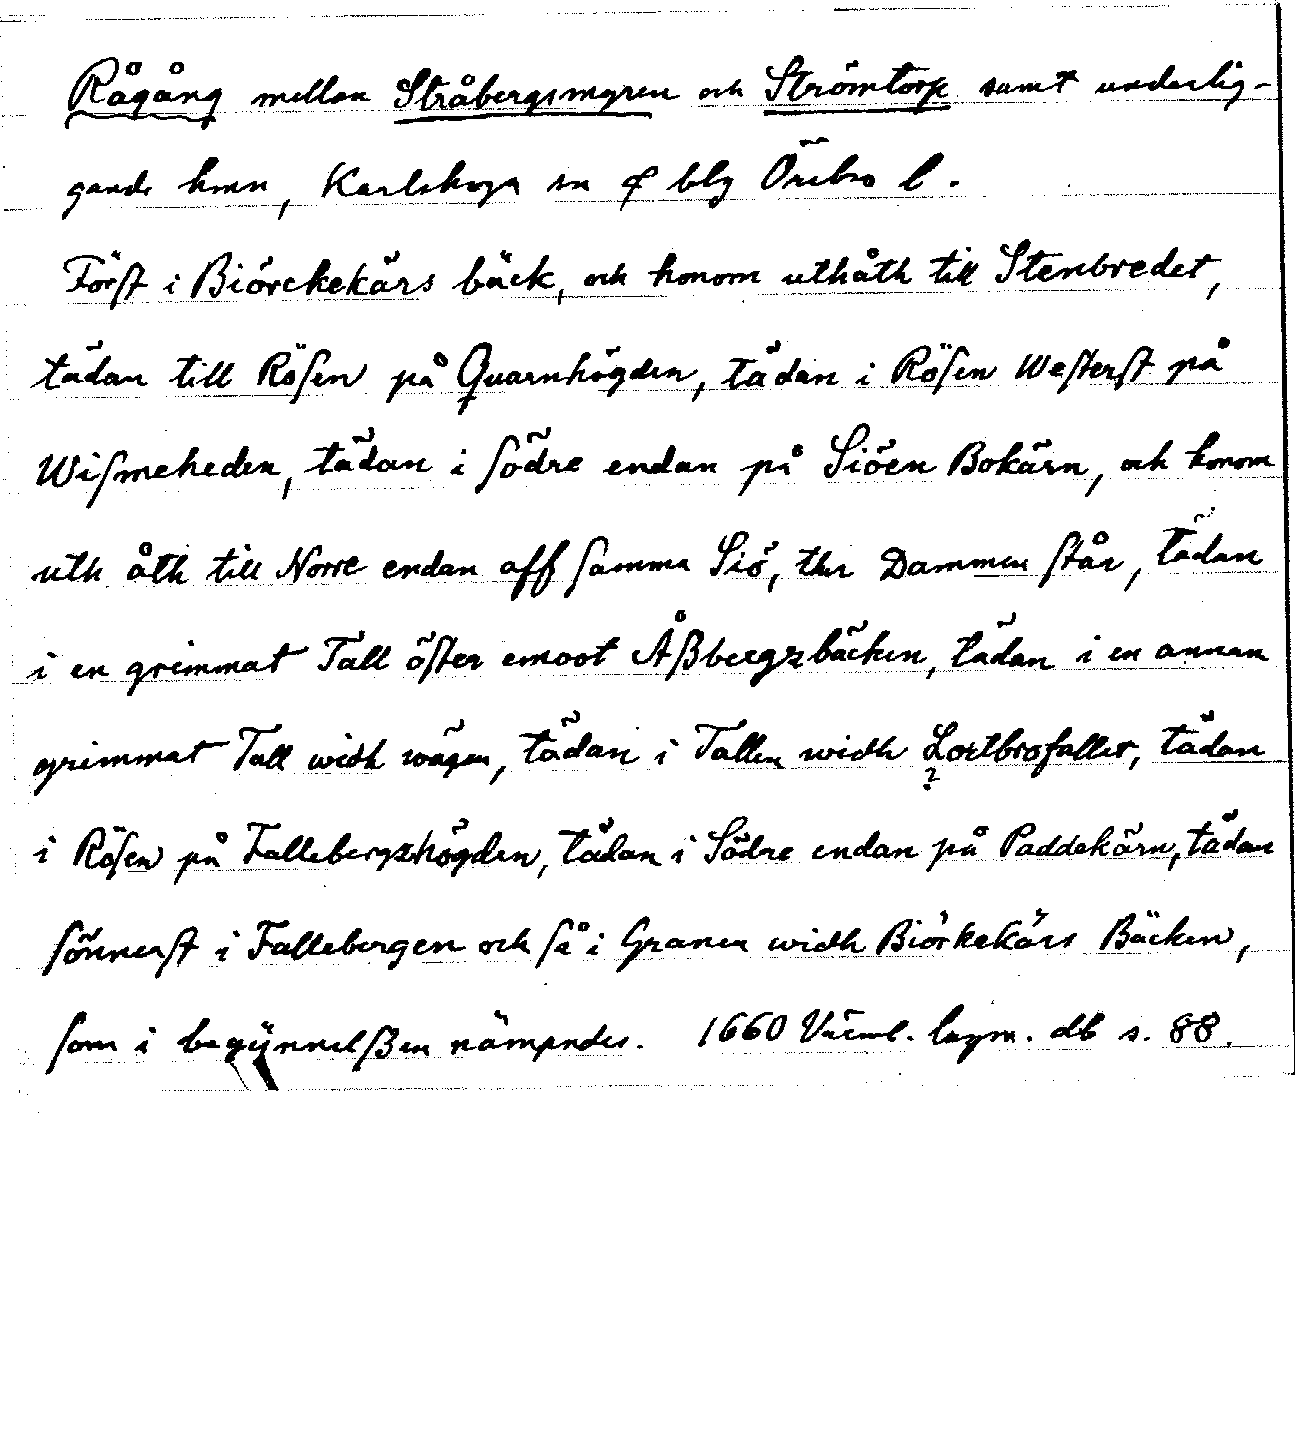 Rågång mellan Stråbergsmyren och Strömtorp samt underlig-
gande hmn, Karlskoga sn & blg Örebro l.
Först i Biörckekärs bäck, och honom uthåth till Stenbredet,
tädan till Rösen på Quarnhögden, tädan i Rösen Westerst på
Wismeheden, tädan i södre endan på Siöen Bokärn, och honom
uth åth till Norre endan aff samma Siö, ther Dammen står, tädan
i en grimmat Tall öster emoot Åßbergzbäcken, tädan i en annan
grimmat Tall widh wägen, tädan i Tallen widh Lortbrofallet, tädan
?
i Rösen på Fallebergzhögden, tädan i Södre endan på Paddekärn, tädan
sönnerst i Fallebergen och så i Granen widh Biörkekärs Bäcken,
som i begÿnnelßen nämpndes. 1660 Värml. lagm. db s. 88.